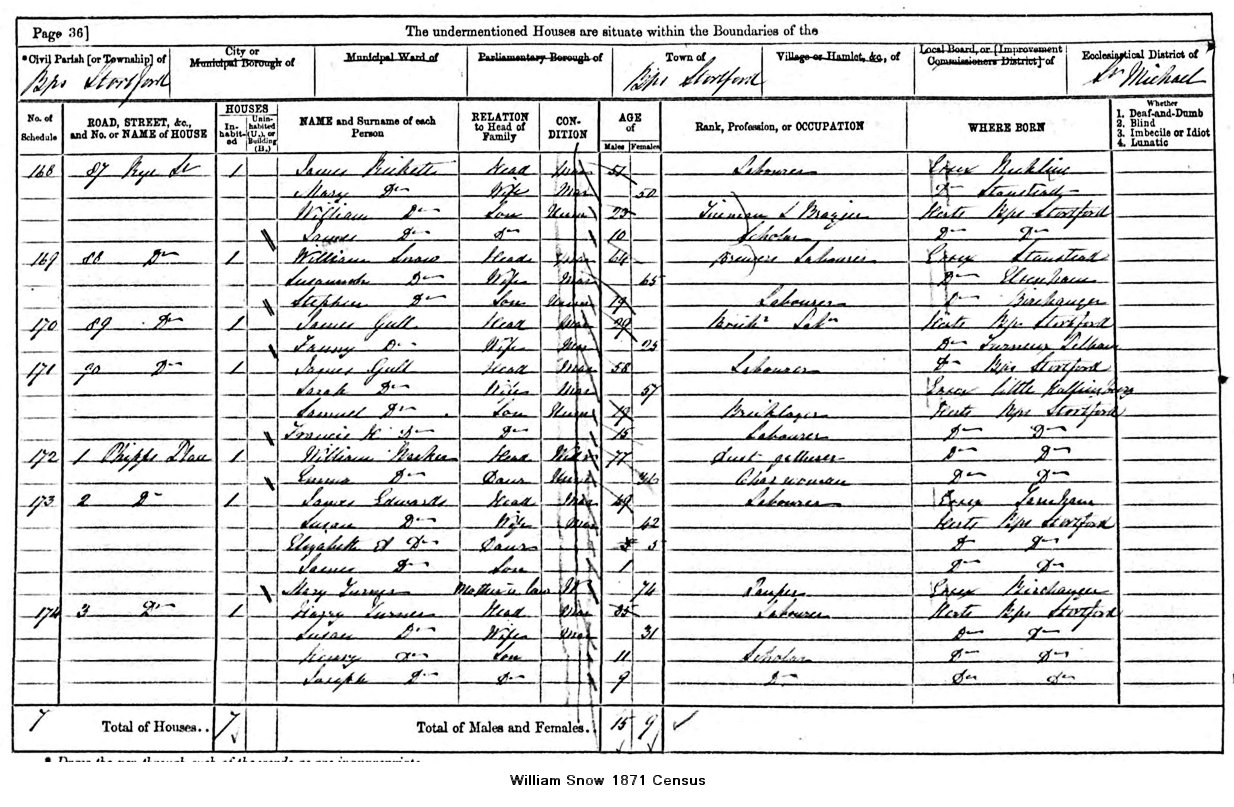 Page 36] The undermentioned Houses are situate within the Boundaries of the
Civil Parish [or Township] of City or Municipal Borough of Municipal Ward of Parliamentary Borough of Town of Village or Hamlet, &c., of Local Board, or [Improvement Commissioners District] of Ecclesiastical District of
Bps Stortford Bps Stortford St Michael
No. of Schedule ROAD, STREET, &c., and No. or NAME of HOUSE HOUSES Inhabited Uninhabited (U.), or Building (B.) NAME and Surname of each Person RELATION to Head of Family CONDITION AGE of Males Females Rank, Profession, or OCCUPATION WHERE BORN Whether 1. Deaf-and-Dumb 2. Blind 3. Imbecile or Idiot 4. Lunatic
168 87 Rye St 1 James Head Mar 51 Labourer Essex
Mary Do Wife Mar 50 Do Stanstead
William Do Son Unm 23 Tinman & Brazier Herts Bps Stortford
James Do Do 10 Scholar Do Do
169 88 Do 1 William Snow Head Mar 64 Brewers Labourer Essex Stanstead
Susannah Do Wife Mar 65 Do Elsenham
Stephen Do Son Unm 19 Labourer Do Birchanger
170 89 Do 1 James Gull Head Mar 29 Herts Bps Stortford
Fanny Do Wife Mar 25 Do Furneux Pelham
171 90 Do 1 James Gull Head Mar 58 Labourer Do Bps Stortford
Sarah Do Wife Mar 57 Essex Little
Samuel Do Son Unm 19 Bricklayer Herts Bps Stortford
Francis H Do Do 15 Labourer Do Do
172 1 Phipps Place 1 William Head 77 Do Do
Emma Do Daur Unm Charwoman Do Do
173 2 Do 1 James Edwards Head Mar 69 Labourer Essex Farnham
Susan Do Wife Mar 62 Herts Bps Stortford
Elizabeth Do Daur 5 Do Do
James Do Son 1 Do Do
Mary Turner Mother in law W 74 Pauper Essex Birchanger
174 3 Do 1 Henry Turner Head Mar 35 Labourer Herts Bps Stortford
Susan Do Wife Mar 31 Do Do
Henry Do Son 11 Scholar Do Do
Joseph Do Do 9 Do Do Do
7 Total of Houses.. 7 Total of Males and Females.. 15 9
William Snow 1871 Census